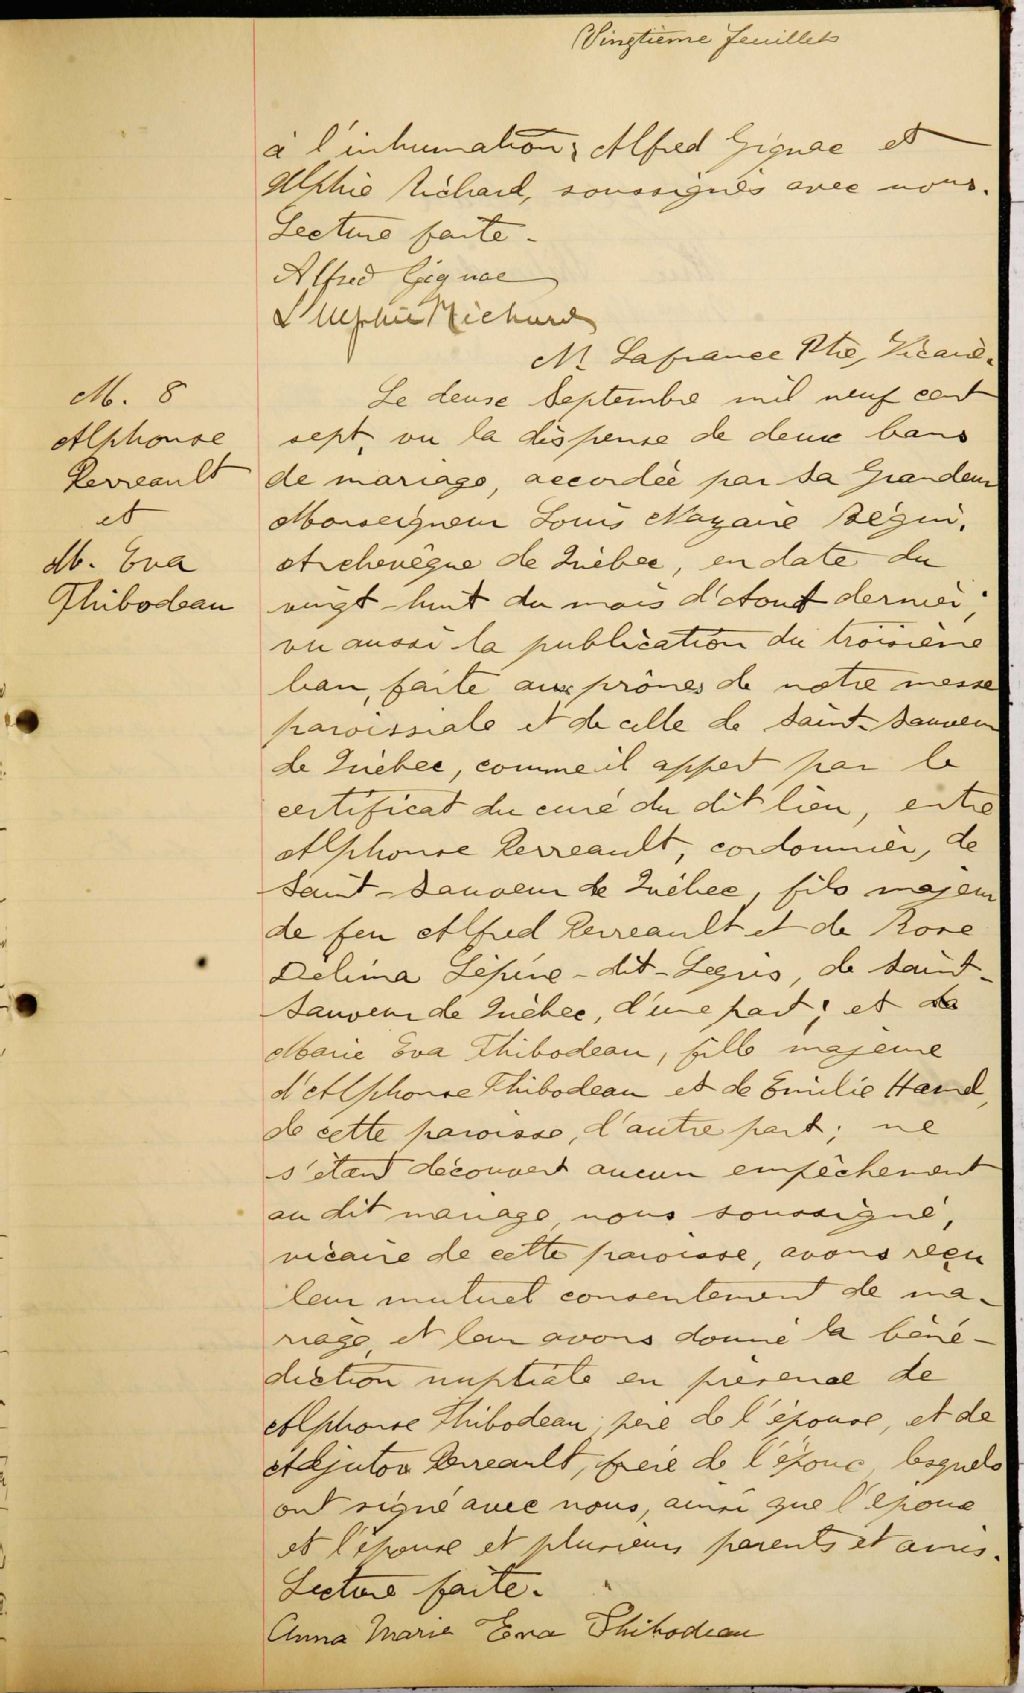 Vingtième feuillet
à l'inhumation; Alfred Gignac et
Alphie Richard, soussignés avec nous.
Lecture faite.
Alfred Gignac
Alphie Richard
N. Lafrance Ptre, Vicaire.
M. 8
Alphonse
Perreault
et
M. Eva
Thibodeau
Le deuxe Septembre mil neuf cent
sept, vu la dispense de deux bans
de mariage, accordée par Sa Grandeur
Monseigneur Louis Nazaire Bégin,
Archevêque de Québec, en date du
vingt-huit du mois d'Août dernier;
vu aussi la publication du troisième
ban, faite aux prônes de notre messe
paroissiale et de celle de Saint-Sauveur
de Québec, comme il appert par le
certificat du curé du dit lieu, entre
Alphonse Perreault, cordonnier, de
Saint-Sauveur de Québec, fils majeur
de feu Alfred Perreault et de Rose
Délima Lépine-dit-Legris, de Saint-
Sauveur de Québec, d'une part; et
Marie Eva Thibodeau, fille majeure
d'Alphonse Thibodeau et de Emilie Hamel,
de cette paroisse, d'autre part; ne
s'étant découvert aucun empêchement
au dit mariage, nous soussigné,
vicaire de cette paroisse, avons reçu
leur mutuel consentement de ma-
riage, et leur avons donné la béné-
diction nuptiale en présence de
Alphonse Thibodeau, père de l'épouse, et de
Adjutor Perreault, frère de l'époux, lesquels
ont signé avec nous, ainsi que l'époux
et l'épouse et plusieurs parents et amis.
Lecture faite.
Anna Marie Eva Thibodeau